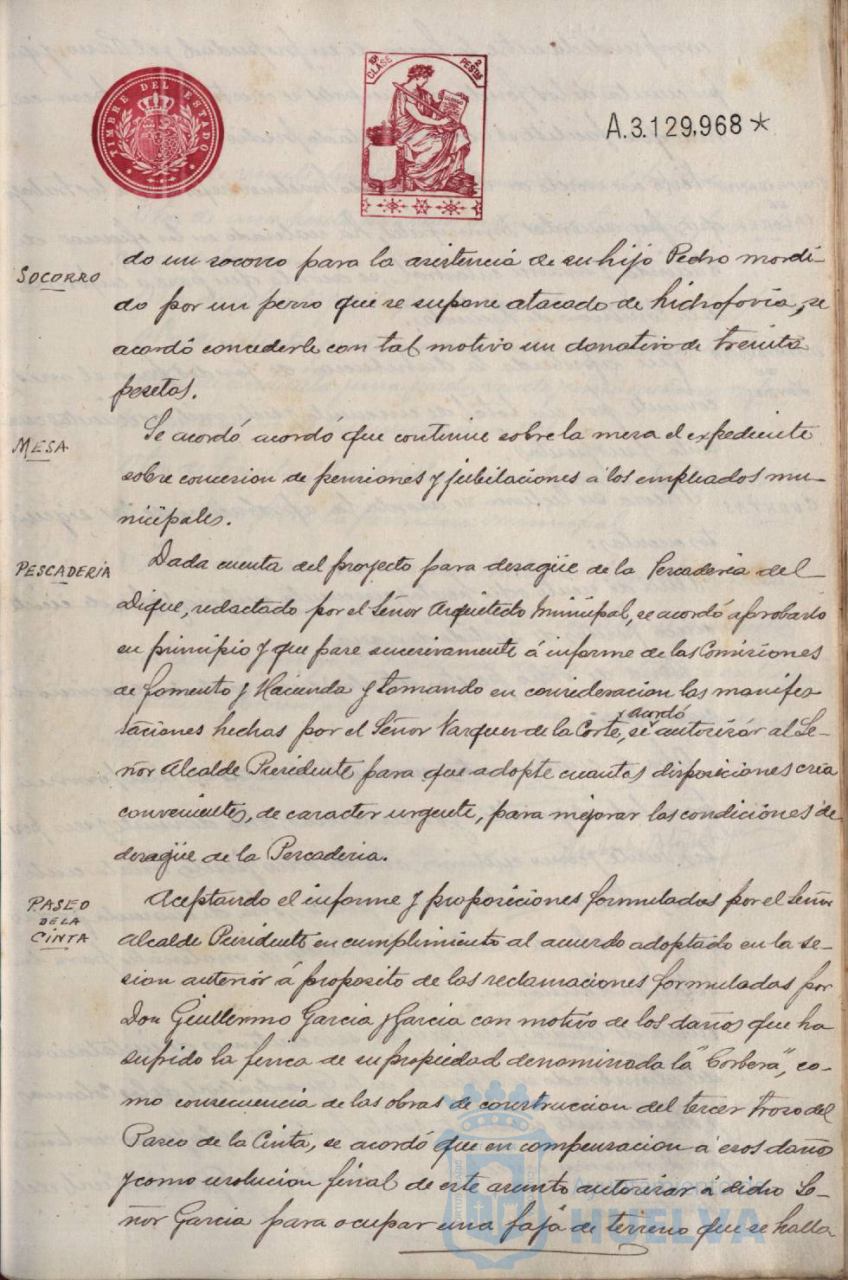 TIMBRE DEL ESTADO
10ª CLASE 2 PESTAS
A.3.129,968 *
SOCORRO
do un socorro para la asistencia de su hijo Pedro mordi-
do por un perro que se supone atacado de hidrofovia, se
acordó concederle con tal motivo un donativo de treinta
pesetas.
MESA
Se acordó acordó que continue sobre la mesa el expediente
sobre concesion de pensiones y jubilaciones á los empleados mu-
nicipales.
PESCADERÍA
Dada cuenta del proyecto para desagüe de la Pescaderia del
Dique, redactado por el Señor Arquitecto Municipal, se acordó aprobarlo
en principio y que pase sucesivamente á informe de las Comisiones
de Fomento y Hacienda y tomando en consideracion las manifes
taciones hechas por el Señor Vazquez de la Corte, se acordó autorizar al Se-
ñor Alcalde Presidente para que adopte cuantas disposiciones crea
convenientes, de caracter urgente, para mejorar las condiciones de
desagüe de la Pescaderia.
PASEO
DE LA
CINTA
Aceptando el informe y proposiciones formuladas por el Señor
Alcalde Presidente en cumplimiento al acuerdo adoptado en la se-
sion anterior á proposito de las reclamaciones formuladas por
Don Guillermo Garcia y Garcia con motivo de los daños que ha
sufrido la finca de su propiedad denominada la "Corbera", co-
mo consecuencia de las obras de construccion del tercer trozo del
Paseo de la Cinta, se acordó que en compensacion á esos daños
y como resolucion final de este asunto autorizar á dicho Se-
ñor Garcia para ocupar una faja de terreno que se halla
Ayuntamiento de
HUELVA